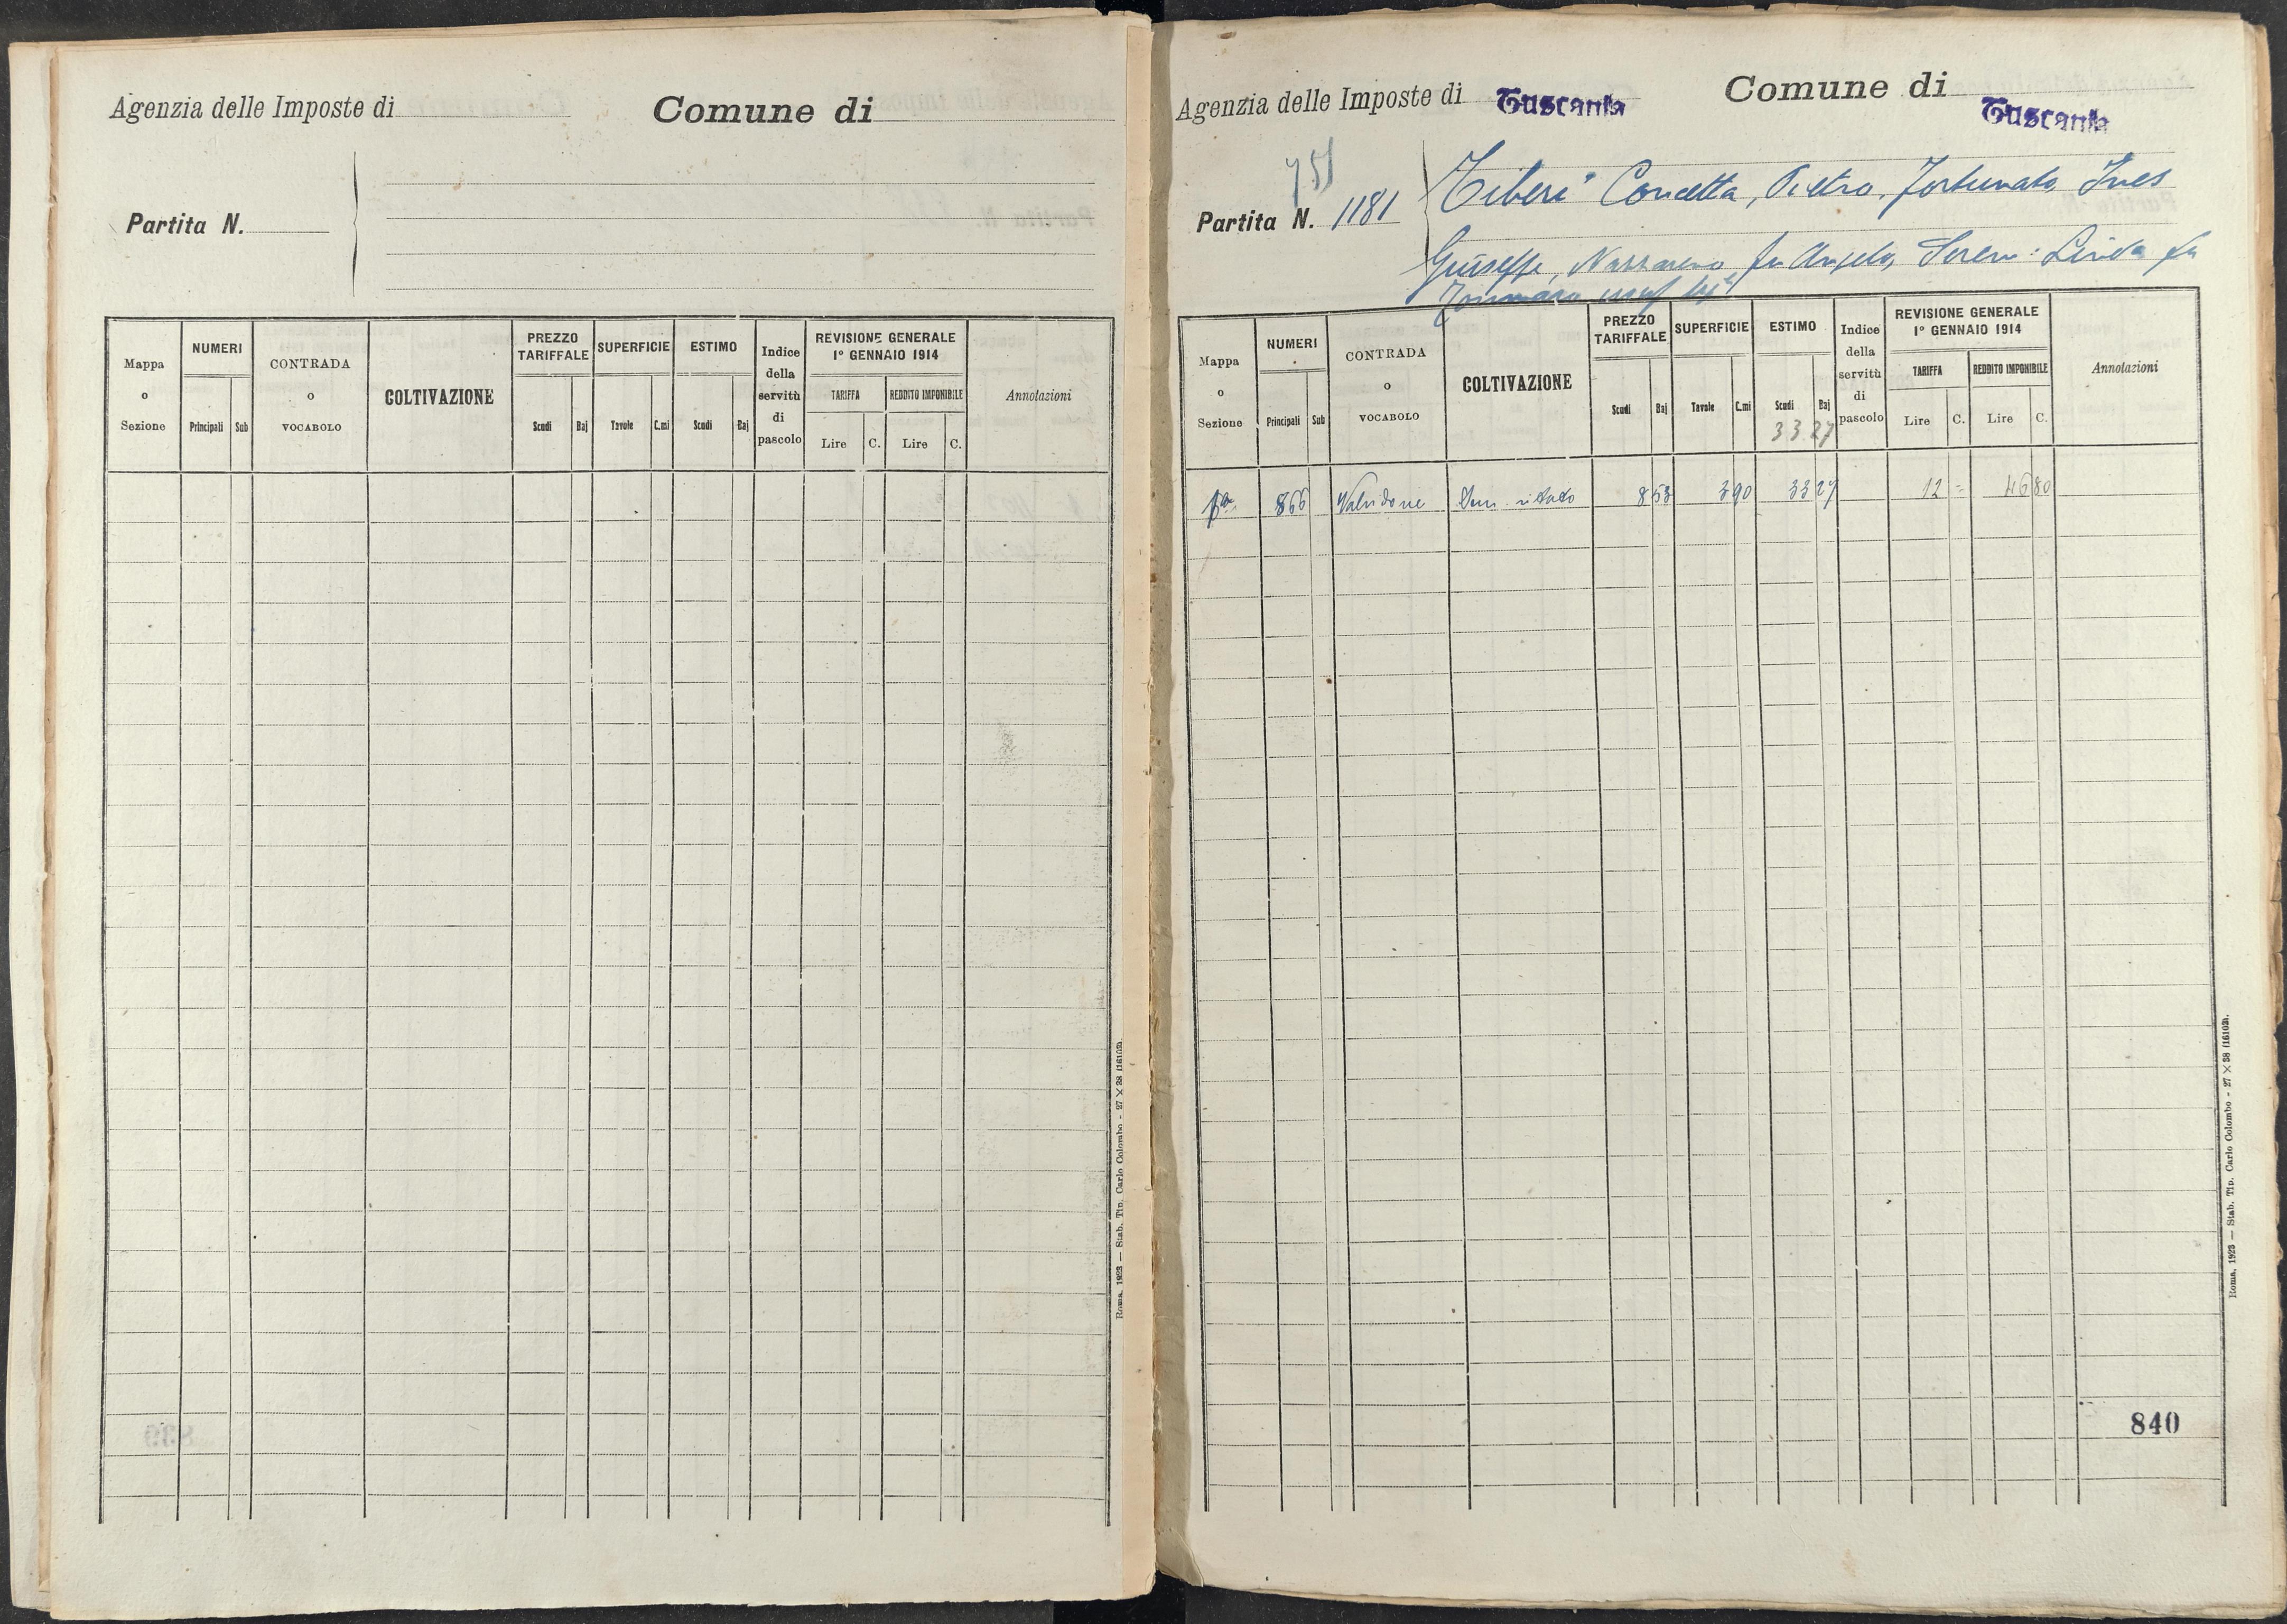 Agenzia delle Imposte di
Comune di
Partita N.
Mappa o Sezione
NUMERI
Principali Sub
CONTRADA o VOCABOLO
COLTIVAZIONE
PREZZO TARIFFALE
Scudi Baj
SUPERFICIE
Tavole C.mi
ESTIMO
Scudi Baj
Indice della servitù di pascolo
REVISIONE GENERALE
1° GENNAIO 1914
TARIFFA
Lire C.
REDDITO IMPONIBILE
Lire C.
Annotazioni
Roma, 1923 — Stab. Tip. Carlo Colombo - 27 × 38 (16102).
Agenzia delle Imposte di Tuscania
Comune di Tuscania
751
Partita N. 1181
Tiberi Concetta, Pietro, Fortunato, Ines
Giuseppe, Nazzareno fu Angelo, Linda fu
Tommaso
Mappa o Sezione
NUMERI
Principali Sub
CONTRADA o VOCABOLO
COLTIVAZIONE
PREZZO TARIFFALE
Scudi Baj
SUPERFICIE
Tavole C.mi
ESTIMO
Scudi Baj
33 27
Indice della servitù di pascolo
REVISIONE GENERALE
1° GENNAIO 1914
TARIFFA
Lire C.
REDDITO IMPONIBILE
Lire C.
Annotazioni
866 Valvidone 8 53 3 90 33 27 12 = 46 80
840
Roma, 1923 — Stab. Tip. Carlo Colombo - 27 × 38 (16102).